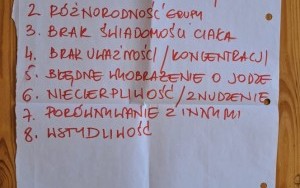 2. RÓŻNORODNOŚĆ GRUPY
3. BRAK ŚWIADOMOŚCI CIAŁA
4. BRAK UWAŻNOŚCI / KONCENTRACJI
5. BŁĘDNE WYOBRAŻENIE O JODZE
6. NIECIERPLIWOŚĆ / ZNUDZENIE
7. PORÓWNYWANIE Z INNYMI
8. WSTYDLIWOŚĆ